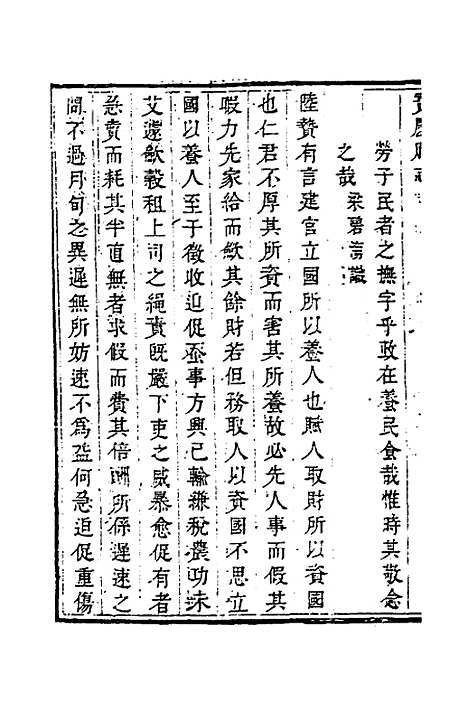 勞于民者之撫字乎政在養民食哉惟時其敬念
之哉梁碧海識
陸贄有言建官立國所以養人也賦人取財所以資國
也仁君不厚其所資而害其所養故必先人事而假其
暇力先家給而歛其餘財若但務取人以資國不思立
國以養人至于徵收迫促蚕事方興已輸縑稅農功未
艾遽歛穀租上司之繩責旣嚴下吏之威暴愈促有者
急賣而耗其半直無者求假而費其倍酬所係遲速之
間不過月旬之異遲無所妨速不為益何急迫促重傷